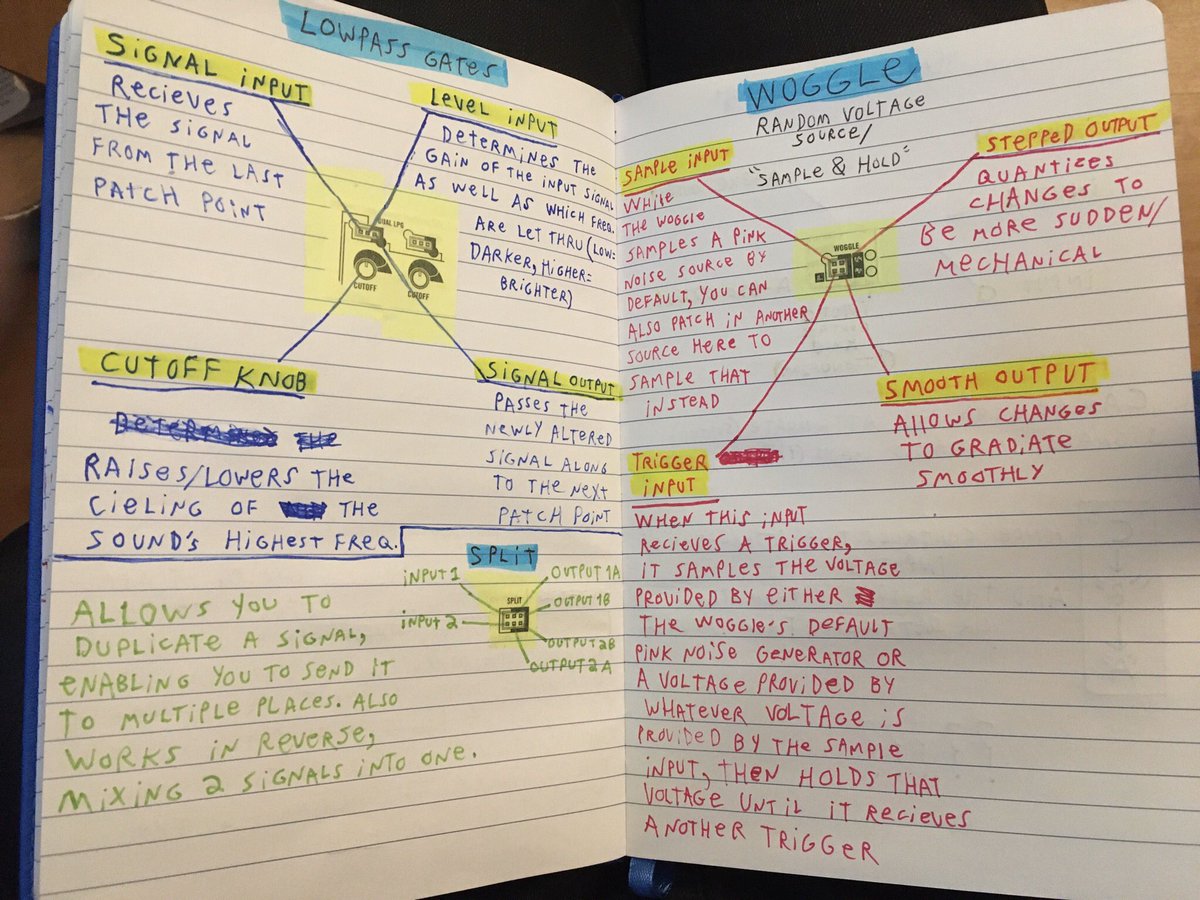 LOWPASS GATES
SIGNAL INPUT
RECIEVES
THE SIGNAL
FROM THE LAST
PATCH POINT
LEVEL INPUT
DETERMINES THE
GAIN OF THE INPUT SIGNAL
AS WELL AS WHICH FREQ.
ARE LET THRU (LOW=
DARKER, HIGHER=
BRIGHTER)
DUAL LPG
CUTOFF
CUTOFF
CUTOFF KNOB
DETERMINES THE
RAISES/LOWERS THE
CIELING OF THE
SOUND'S HIGHEST FREQ.
SIGNAL OUTPUT
PASSES THE
NEWLY ALTERED
SIGNAL ALONG
TO THE NEXT
PATCH POINT
SPLIT
INPUT 1
OUTPUT 1A
SPLIT
OUTPUT 1B
INPUT 2
OUTPUT 2B
OUTPUT 2A
ALLOWS YOU TO
DUPLICATE A SIGNAL,
ENABLING YOU TO SEND IT
TO MULTIPLE PLACES. ALSO
WORKS IN REVERSE,
MIXING 2 SIGNALS INTO ONE.
WOGGLE
RANDOM VOLTAGE
SOURCE/
"SAMPLE & HOLD"
SAMPLE INPUT
WHILE
THE WOGGLE
SAMPLES A PINK
NOISE SOURCE BY
DEFAULT, YOU CAN
ALSO PATCH IN ANOTHER
SOURCE HERE TO
SAMPLE THAT
INSTEAD
STEPPED OUTPUT
QUANTIZES
CHANGES TO
BE MORE SUDDEN/
MECHANICAL
WOGGLE
SMOOTH OUTPUT
ALLOWS CHANGES
TO GRADIATE
SMOOTHLY
TRIGGER
INPUT
WHEN THIS INPUT
RECIEVES A TRIGGER,
IT SAMPLES THE VOLTAGE
PROVIDED BY EITHER
THE WOGGLE'S DEFAULT
PINK NOISE GENERATOR OR
A VOLTAGE PROVIDED BY
WHATEVER VOLTAGE IS
PROVIDED BY THE SAMPLE
INPUT, THEN HOLDS THAT
VOLTAGE UNTIL IT RECIEVES
ANOTHER TRIGGER